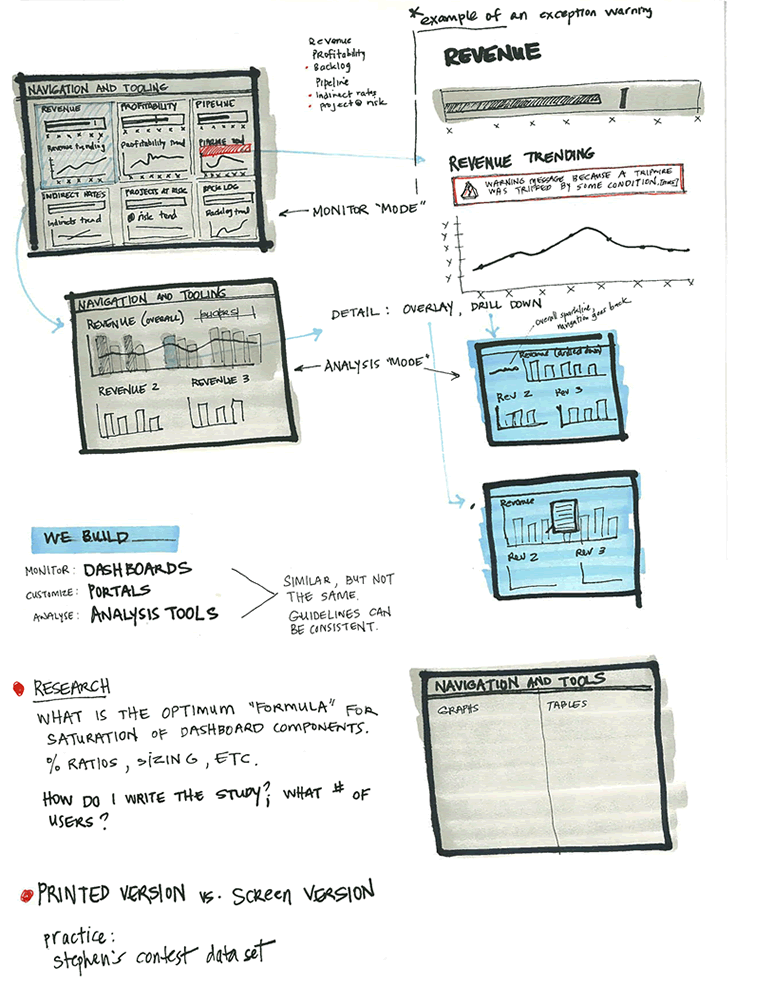 *example of an exception warning
Revenue
Profitability
• Backlog
Pipeline
• Indirect rates
• project @ risk
REVENUE
x x x x x x x
REVENUE TRENDING
WARNING MESSAGE BECAUSE A TRIPWIRE
WAS TRIPPED BY SOME CONDITION.
Y
Y
X
X
Y
x x x x x x x x
NAVIGATION AND TOOLING
REVENUE
PROFITABILITY
PIPELINE
Revenue trending
Profitability Trend
INDIRECT RATES
PROJECTS AT RISK
BACK LOG
Indirects trend
@ risk trend
Backlog trend
MONITOR "MODE"
NAVIGATION AND TOOLING
REVENUE (OVERALL)
REVENUE 2
REVENUE 3
DETAIL: OVERLAY, DRILL DOWN
overall sparkline,
navigation goes back
ANALYSIS "MODE"
Revenue (drilled down)
Rev 2
Rev 3
Revenue
Rev 2
Rev 3
WE BUILD
MONITOR: DASHBOARDS
CUSTOMIZE: PORTALS
ANALYSE: ANALYSIS TOOLS
SIMILAR, BUT NOT
THE SAME.
GUIDELINES CAN
BE CONSISTENT.
RESEARCH
WHAT IS THE OPTIMUM "FORMULA" FOR
SATURATION OF DASHBOARD COMPONENTS.
% RATIOS, SIZING, ETC.
HOW DO I WRITE THE STUDY?; WHAT # OF
USERS?
NAVIGATION AND TOOLS
GRAPHS
TABLES
PRINTED VERSION vs. SCREEN VERSION
practice:
stephen's contest data set